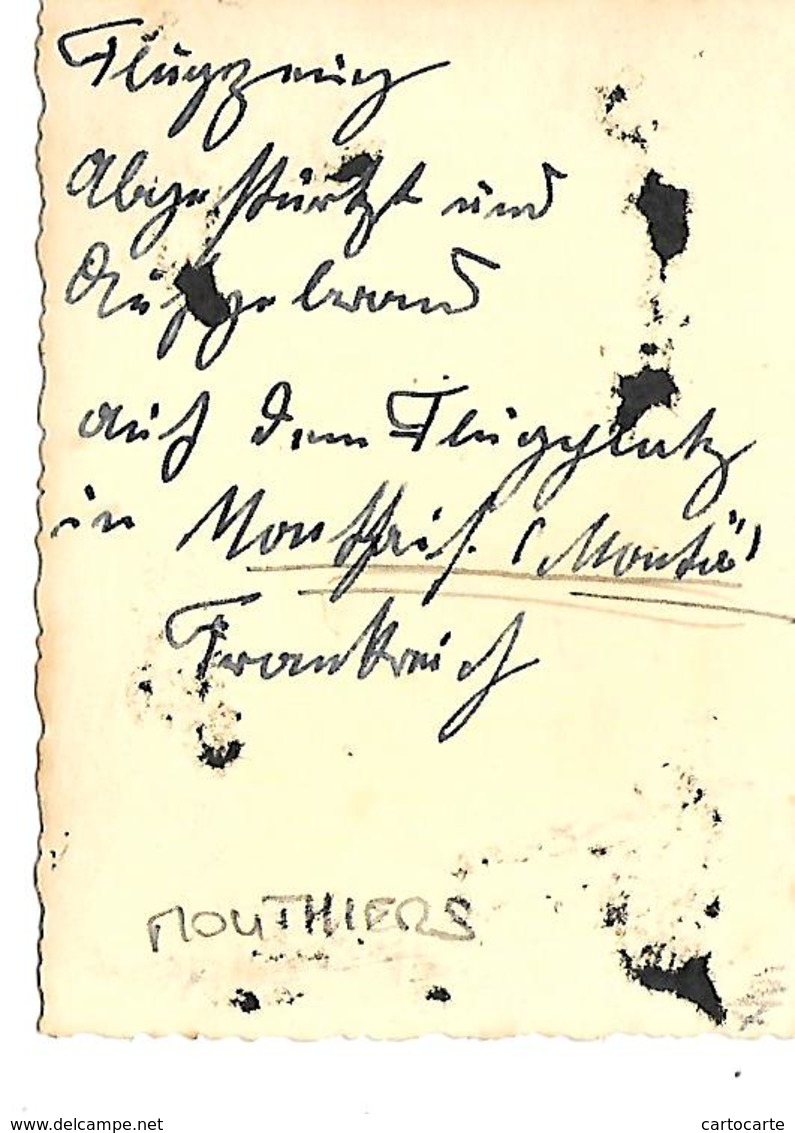 Flugzeug
Abgestürtzt und
Ausgebrand
auf dem Flugplatz
in (Montiä)
Frankreich
MOUTHIERS
www.delcampe.net
cartocarte